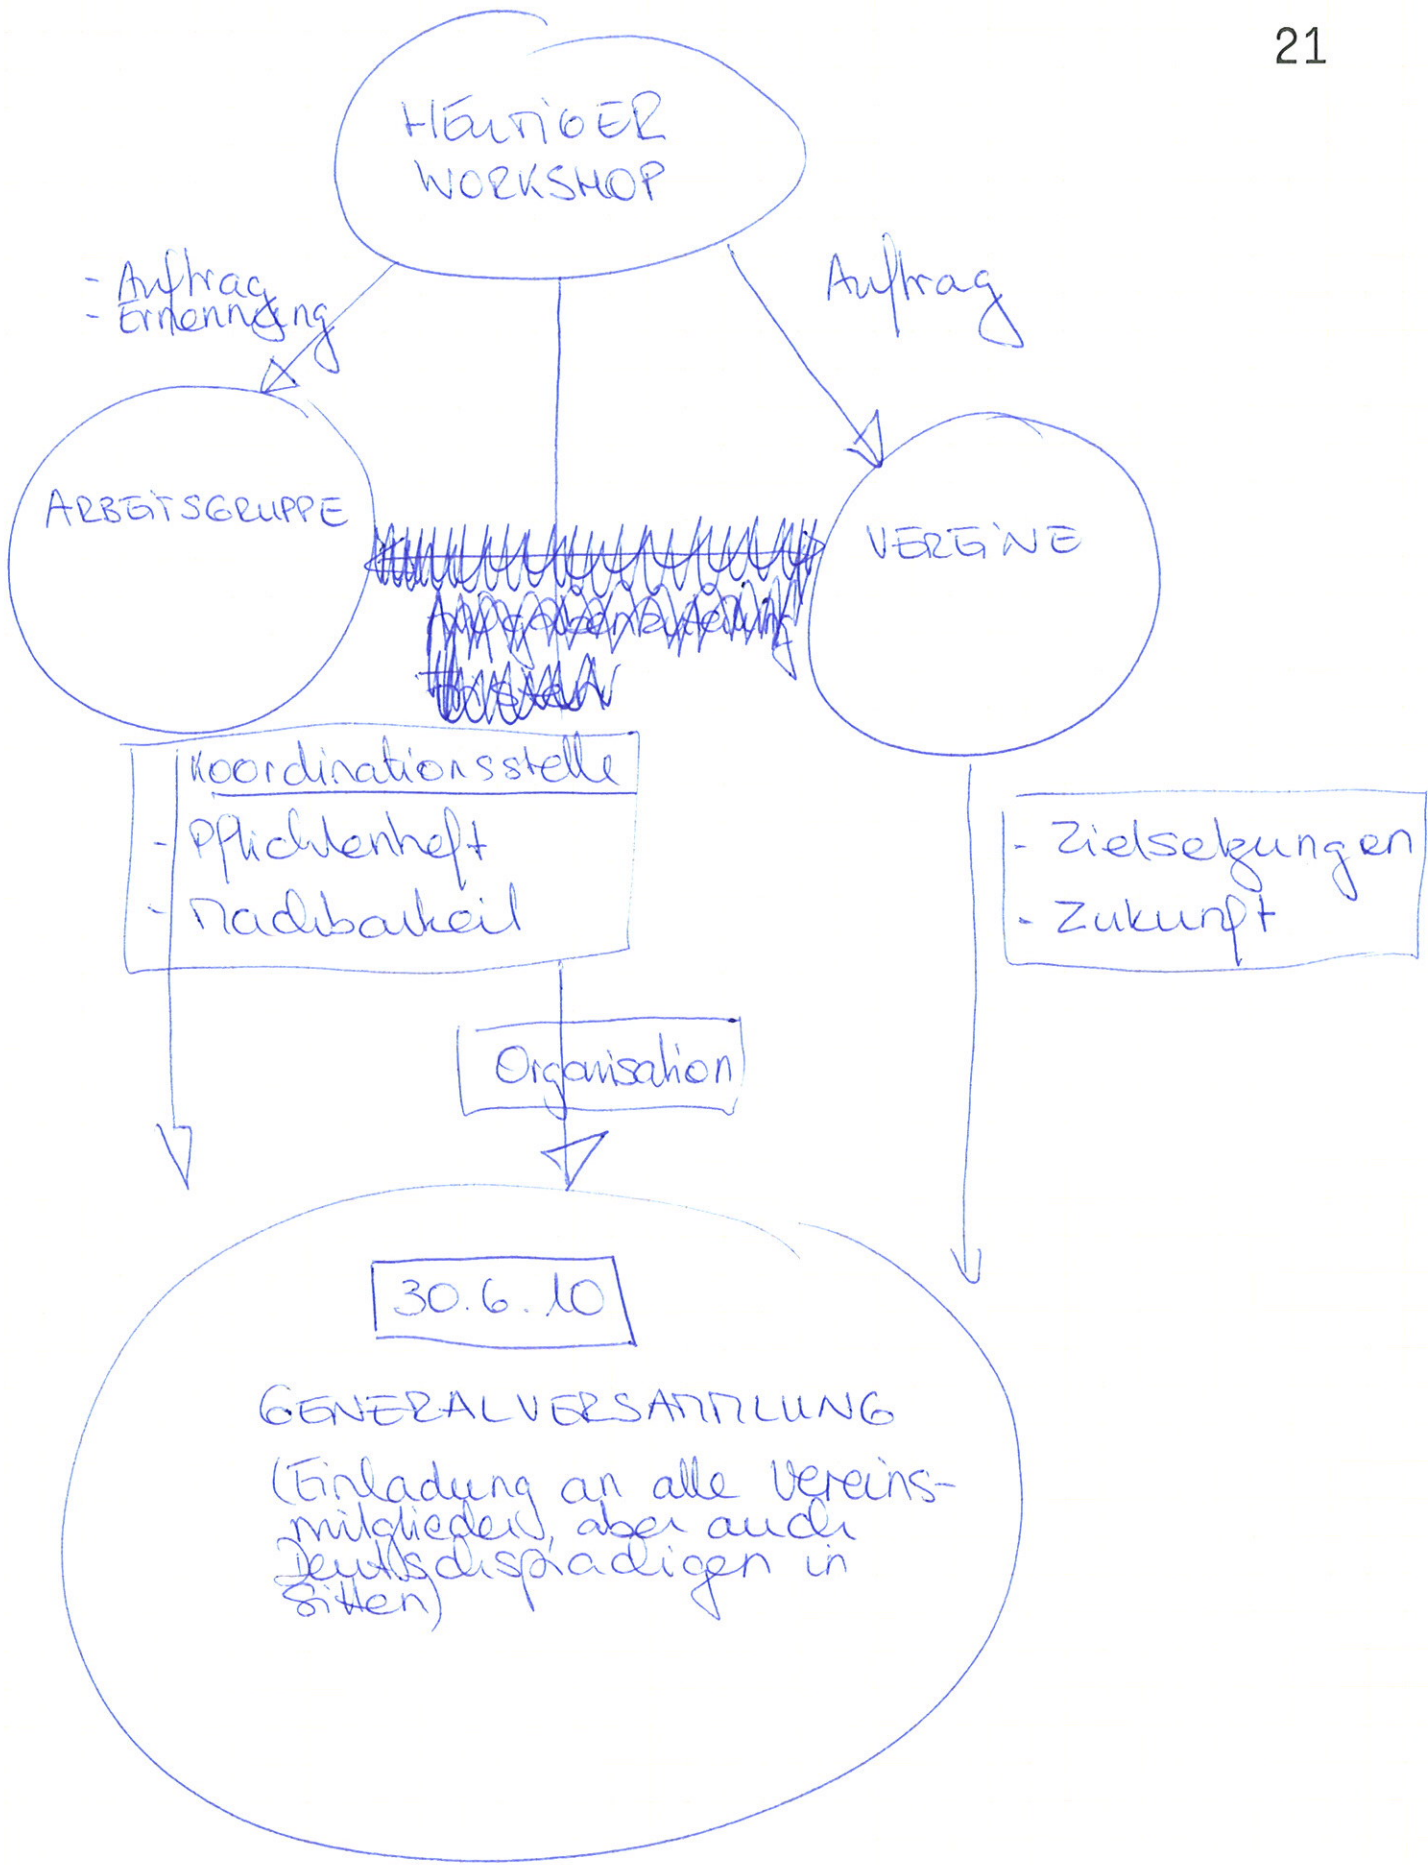 21
HEUTIGER
WORKSHOP
- Auftrag
- Ernennung
Auftrag
ARBEITSGRUPPE
VEREINE
Koordinationsstelle
- Pflichtenheft
- Machbarkeit
- Zielsetzungen
- Zukunft
Organisation
30.6.10
GENERALVERSAMMLUNG
(Einladung an alle Vereins-
mitglieder, aber auch
Deutschsprachigen in
Sitten)